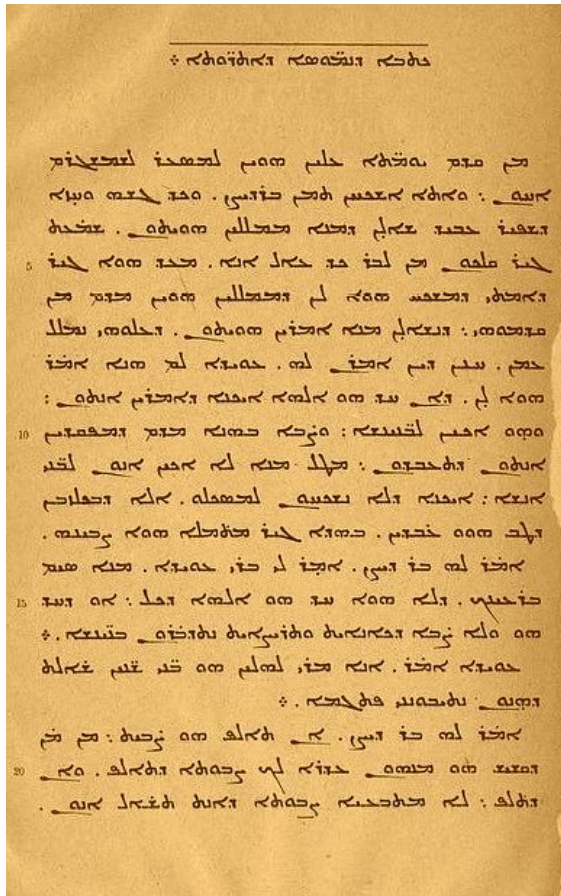 ܟܬܒܐ ܕܢܡ̈ܘܣܐ ܕܐܬܪ̈ܘܬܐ ܀
ܡܢ ܩܕܡ ܝܘܡ̈ܬܐ ܥܠܝܢ ܗܘܝܢ ܠܡܣܥܪ ܠܫܡܫܓܪܡ
ܐܚܘܢ : ܘܐܬܐ ܐܫܟܚܢ ܬܡܢ ܒܪܕܝܨܢ . ܘܟܕ ܓܫܡ ܘܚܙܐ
ܕܫܦܝܪ ܥܒܝܕ ܫܐܠܢ ܕܡܢܐ ܡܡܠܠܝܢ ܗܘܝܬܘܢ . ܫܡܥܬ
5 ܓܝܪ ܩܠܟܘܢ ܡܢ ܠܒܪ ܟܕ ܥܐܠ ܐܢܐ . ܡܥܕ ܗܘܐ ܓܝܪ
ܕܐܡܬܝ ܕܡܫܟܚ ܗܘܐ ܠܢ ܕܡܡܠܠܝܢ ܗܘܝܢ ܡܕܡ ܡܢ
ܩܕܡܘܗܝ : ܕܢܫܐܠܢ ܡܢܐ ܐܡܪܝܢ ܗܘܝܬܘܢ . ܕܥܠܘܗܝ ܢܡܠܠ
ܥܡܢ . ܚܢܢ ܕܝܢ ܐܡܪܢ ܠܗ . ܥܘܝܕܐ ܠܡ ܗܢܐ ܐܡܪ
ܗܘܐ ܠܢ . ܕܐܢ ܚܕ ܗܘ ܐܠܗܐ ܐܝܟܢܐ ܕܐܡܪܝܢ ܐܢܬܘܢ :
10 ܘܗܘ ܐܟܝܢ ܠܒܢܝܢܫܐ : ܘܨܒܐ ܒܗܢܐ ܡܕܡ ܕܡܦܩܕܝܢ
ܐܢܬܘܢ ܕܬܥܒܕܘܢ : ܡܛܠ ܡܢܐ ܠܐ ܐܟܝܢ ܐܢܘܢ ܠܒܢܝ
ܐܢܫܐ : ܐܝܟܢܐ ܕܠܐ ܢܫܟܚܘܢ ܠܡܣܟܠܘ . ܐܠܐ ܕܒܟܠܙܒܢ
ܕܛܒ ܗܘܘ ܥܒܕܝܢ . ܒܗܕܐ ܓܝܪ ܡܬܡܠܐ ܗܘܐ ܨܒܝܢܗ .
ܐܡܪ ܠܗ ܒܪ ܕܝܨܢ . ܐܡܪ ܠܝ ܒܪܝ ܥܘܝܕܐ . ܡܢܐ ܣܝܡ
15 ܒܪܥܝܢܟ . ܕܠܐ ܗܘܐ ܚܕ ܗܘ ܐܠܗܐ ܕܟܠ : ܐܘ ܕܚܕ
ܗܘ ܘܠܐ ܨܒܐ ܕܟܐܢܐܝܬ ܘܬܪܝܨܐܝܬ ܢܬܕܒܪܘܢ ܒܢܝ̈ܢܫܐ . ܀
ܥܘܝܕܐ ܐܡܪ . ܐܢܐ ܡܪܝ . ܠܗܠܝܢ ܗܘ ܒܢ̈ܝ ܫܢ̈ܝ ܫܐܠܬ
ܕܗܢܘܢ ܢܬܝܒܘܢܢܝ ܦܬܓܡܐ . ܀
ܐܡܪ ܠܗ ܒܪ ܕܝܨܢ . ܐܢ ܬܐܠܦ ܗܘ ܨܒܝܬ : ܡܢ ܡܢ
20 ܕܩܫܝܫ ܗܘ ܡܢܗܘܢ ܥܕܪܐ ܠܟ ܨܒܘܬܐ ܕܬܐܠܦ . ܘܐܢ
ܕܬܠܦ : ܠܐ ܡܬܒܥܝܐ ܨܒܘܬܐ ܕܐܢܬ ܬܫܐܠ ܐܢܘܢ .